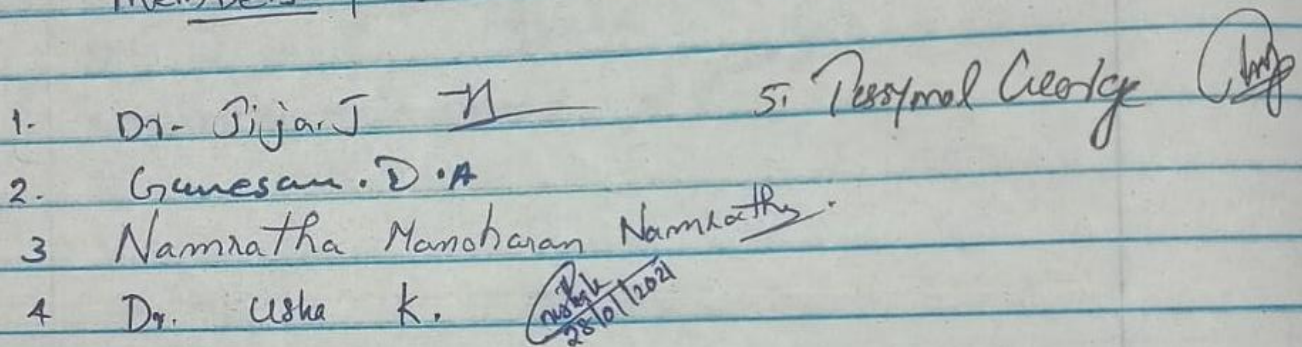 Members
1. Dr. Jija. J
2. Ganesan. D. A
3 Namratha Manoharan Namratha.
4 Dr. Usha K. 28/01/2021
5. Tessymol George